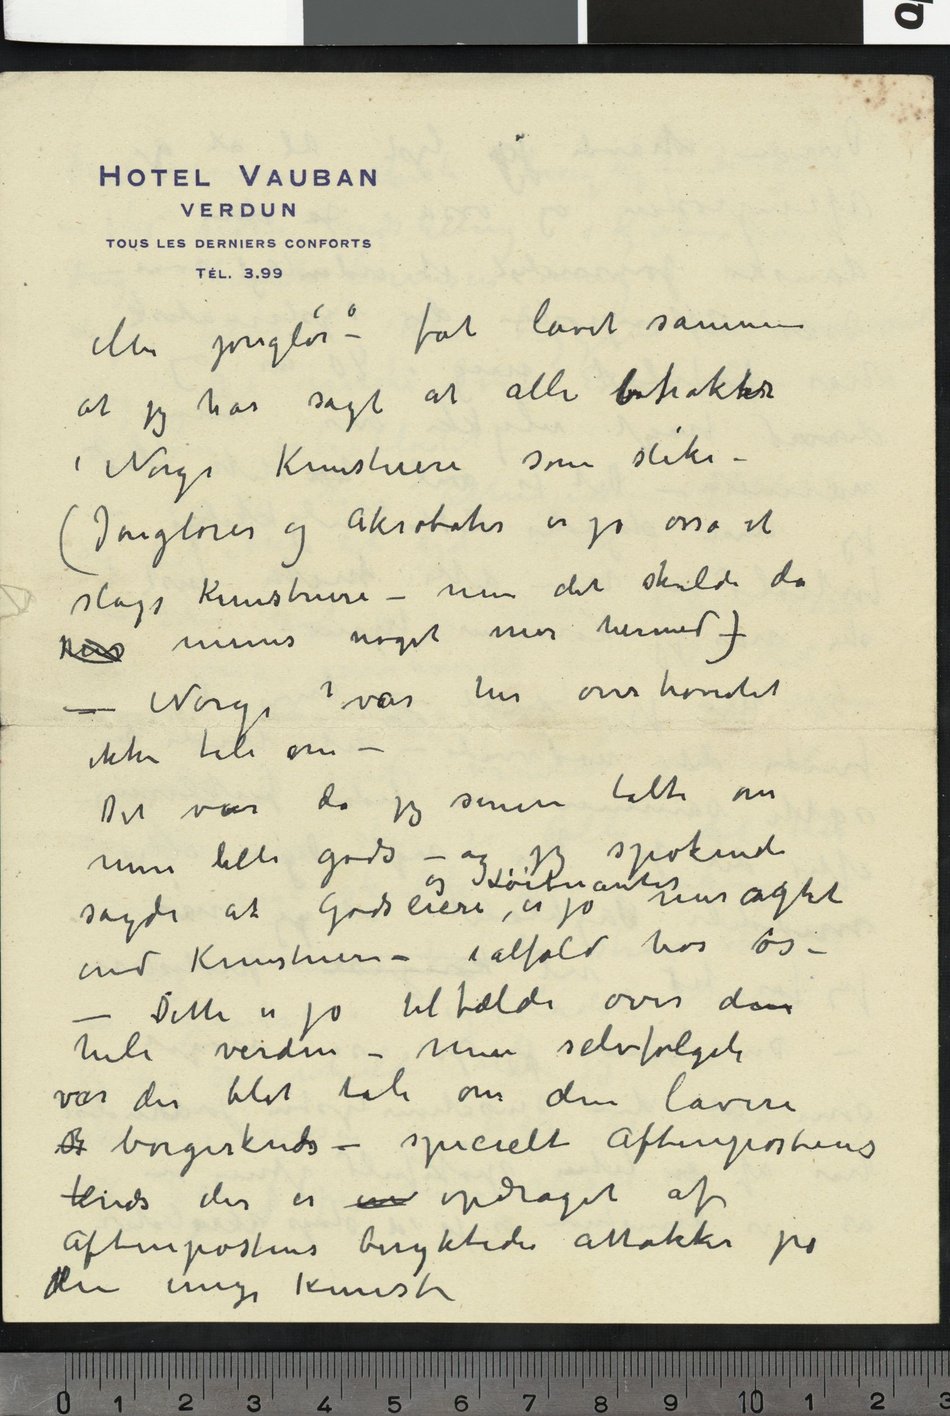 HOTEL VAUBAN
VERDUN
TOUS LES DERNIERS CONFORTS
TÉL. 3.99
eller jonglör" – fåt lavet sammen
at jeg har sagt at alle betrakter
i Norge Kunstnere som slike –
(Jonglører og Akrobater er jo osså et
slags Kunstnere – men det skulde da
menes noget mer hermed)
— Norge var her overhovedet
ikke tale om –
Det var da jeg senere talte om
mine lille gods – og jeg spøkende
og Løitnanter
sagde at Godseiere, er jo mer agtet
end Kunstnere – ialfald hos os –
— Dette er jo tilfælde over den
hele verden – Men selvfølgeli
var der blot tale om den lavere
borgerkreds – specielt Aftenpostens
kreds der er opdraget af
Aftenpostens berygtede attakker på
den unge Kunst
0 1 2 3 4 5 6 7 8 9 10 1 2 3